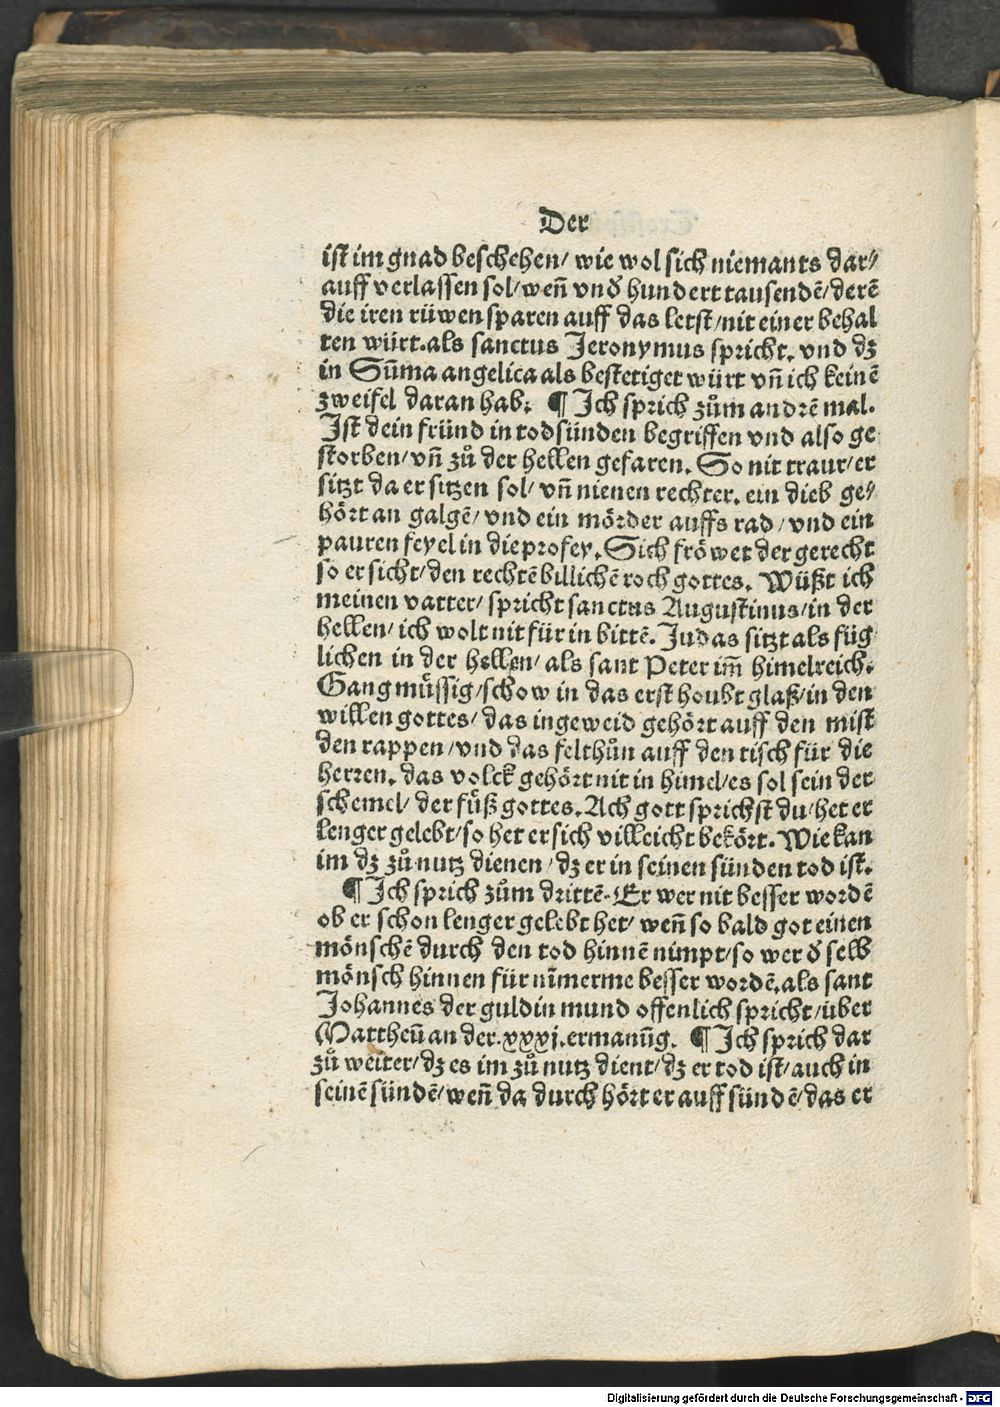 Der
ist im gnad beschehen/ wie wol sich niemants dar⸗
auff verlassen sol/ weñ vnd̕ hundert tausendẽ/ derẽ
die iren rüwen sparen auff das letst/ nit einer behal
ten würt. als sanctus Jeronymus spricht. vnd dz
in Sũma angelica als bestetiget würt vñ ich keinẽ
zweifel daran hab. ¶ Ich sprich zům andrẽ mal.
Ist dein fründ in todsünden begriffen vnd also ge
storben/ vñ zů der hellen gefaren. So nit traur/ er
sitzt da er sitzen sol/ vñ nienen rechter. ein dieb ge⸗
hört an galgẽ/ vnd ein mörder auffs rad/ vnd ein
pauren feyel in die profey. Sich fröwet der gerecht
so er sicht/ den rechtẽ billichẽ roch gottes. Wüßt ich
meinen vatter/ spricht sanctus Augustinus/ in der
hellen/ ich wolt nit für in bittẽ. Judas sitzt als füg
lichen in der hellen/ als sant Peter im̃ himelreich.
Gang müssig/ schow in das erst houbt glaß/ in den
willen gottes/ das ingeweid gehört auff den mist
den rappen/ vnd das felthůn auff den tisch für die
herren. das volck gehört nit in himel/ es sol sein der
schemel/ der füß gottes. Ach gott sprichst du/ het er
lenger gelebt/ so het er sich villeicht bekört. Wie kan
im dz zů nutz dienen/ dz er in seinen sünden tod ist.
¶ Ich sprich zům drittẽ. Er wer nit besser wordẽ
ob er schon lenger gelebt het/ weñ so bald got einen
mönschẽ durch den tod hinnẽ nimpt/ so wer d̕ selb
mönsch hinnen für nĩmerme besser wordẽ. als sant
Johannes der guldin mund offenlich spricht/ über
Mattheũ an der .xxxj. ermanũg. ¶ Ich sprich dar
zů weiter/ dz es im zů nutz dient/ dz er tod ist/ auch in
seinẽ sündẽ/ weñ da durch hört er auff sündẽ/ das er
Digitalisierung gefördert durch die Deutsche Forschungsgemeinschaft - DFG